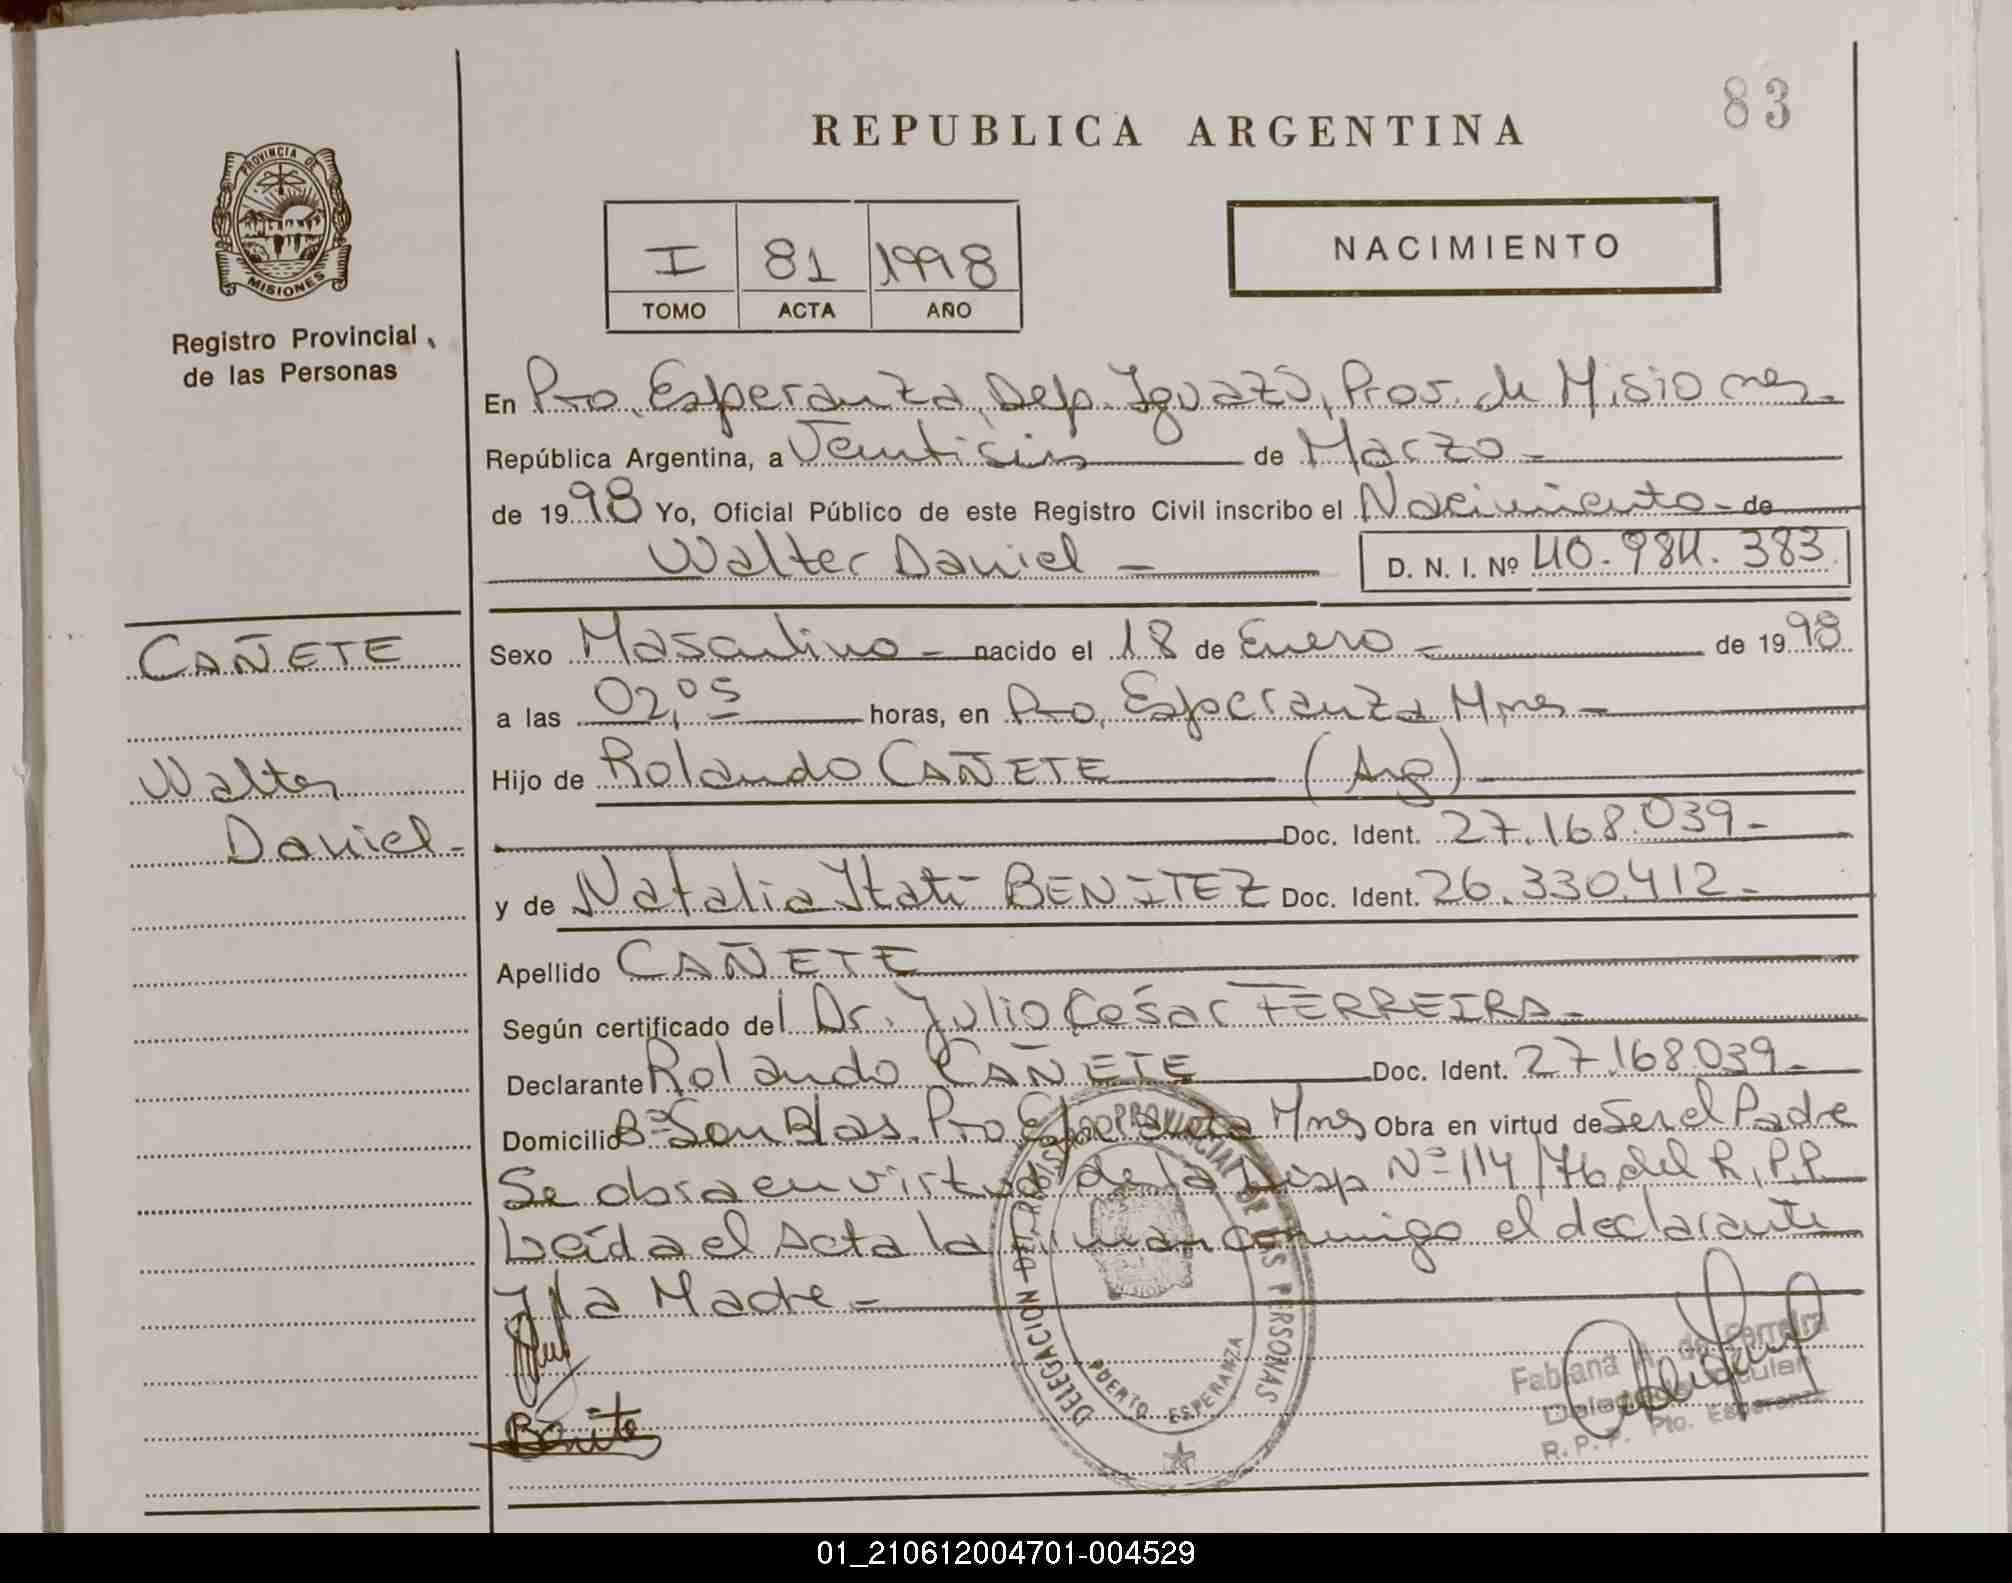 83
REPUBLICA ARGENTINA
PROVINCIA DE
MISIONES
Registro Provincial
de las Personas
I 81 1998
TOMO ACTA AÑO
NACIMIENTO
En Pto. Esperanza, Dep. Iguazú, Prov. de Misiones.
República Argentina, a Veintiseis de Marzo
de 1998 Yo, Oficial Público de este Registro Civil inscribo el Nacimiento - de
Walter Daniel - D. N. I. Nº 40.984.383
CAÑETE
Walter
Daniel -
Sexo Masculino - nacido el 18 de Enero - de 1998
a las 02,05 horas, en Pto. Esperanza Mnes -
Hijo de Rolando CAÑETE (Arg)
Doc. Ident. 27.168.039 -
y de Natalia Itatí BENITEZ Doc. Ident. 26.330.412 -
Apellido CAÑETE
Según certificado del Dr. Julio César FERREIRA -
Declarante Rolando CAÑETE Doc. Ident. 27.168.039 -
Domicilio Bº San Blas. Pto Esperanza Mnes Obra en virtud de Ser el Padre
Se obra en virtud de la Disp Nº 114/76 del R.P.P.
Leída el Acta la firman conmigo el declarante
y la Madre -
DELEGACION REGISTRO PROVINCIAL DE LAS PERSONAS
PUERTO ESPERANZA
Benite
Fabiana de Ferreira
Delegada Titular
R.P.P. Pto. Esperanza
01_210612004701-004529